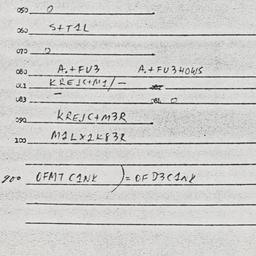 050 0
060 S+T1L
070 0
080 A.+FU3 A.+FU3HOWS
081 KREJC+M1/-
083 - 0
090 KREJC+M3R
100 M1LX1K83R
900 OFMT C1NK )= OF D3C1NK